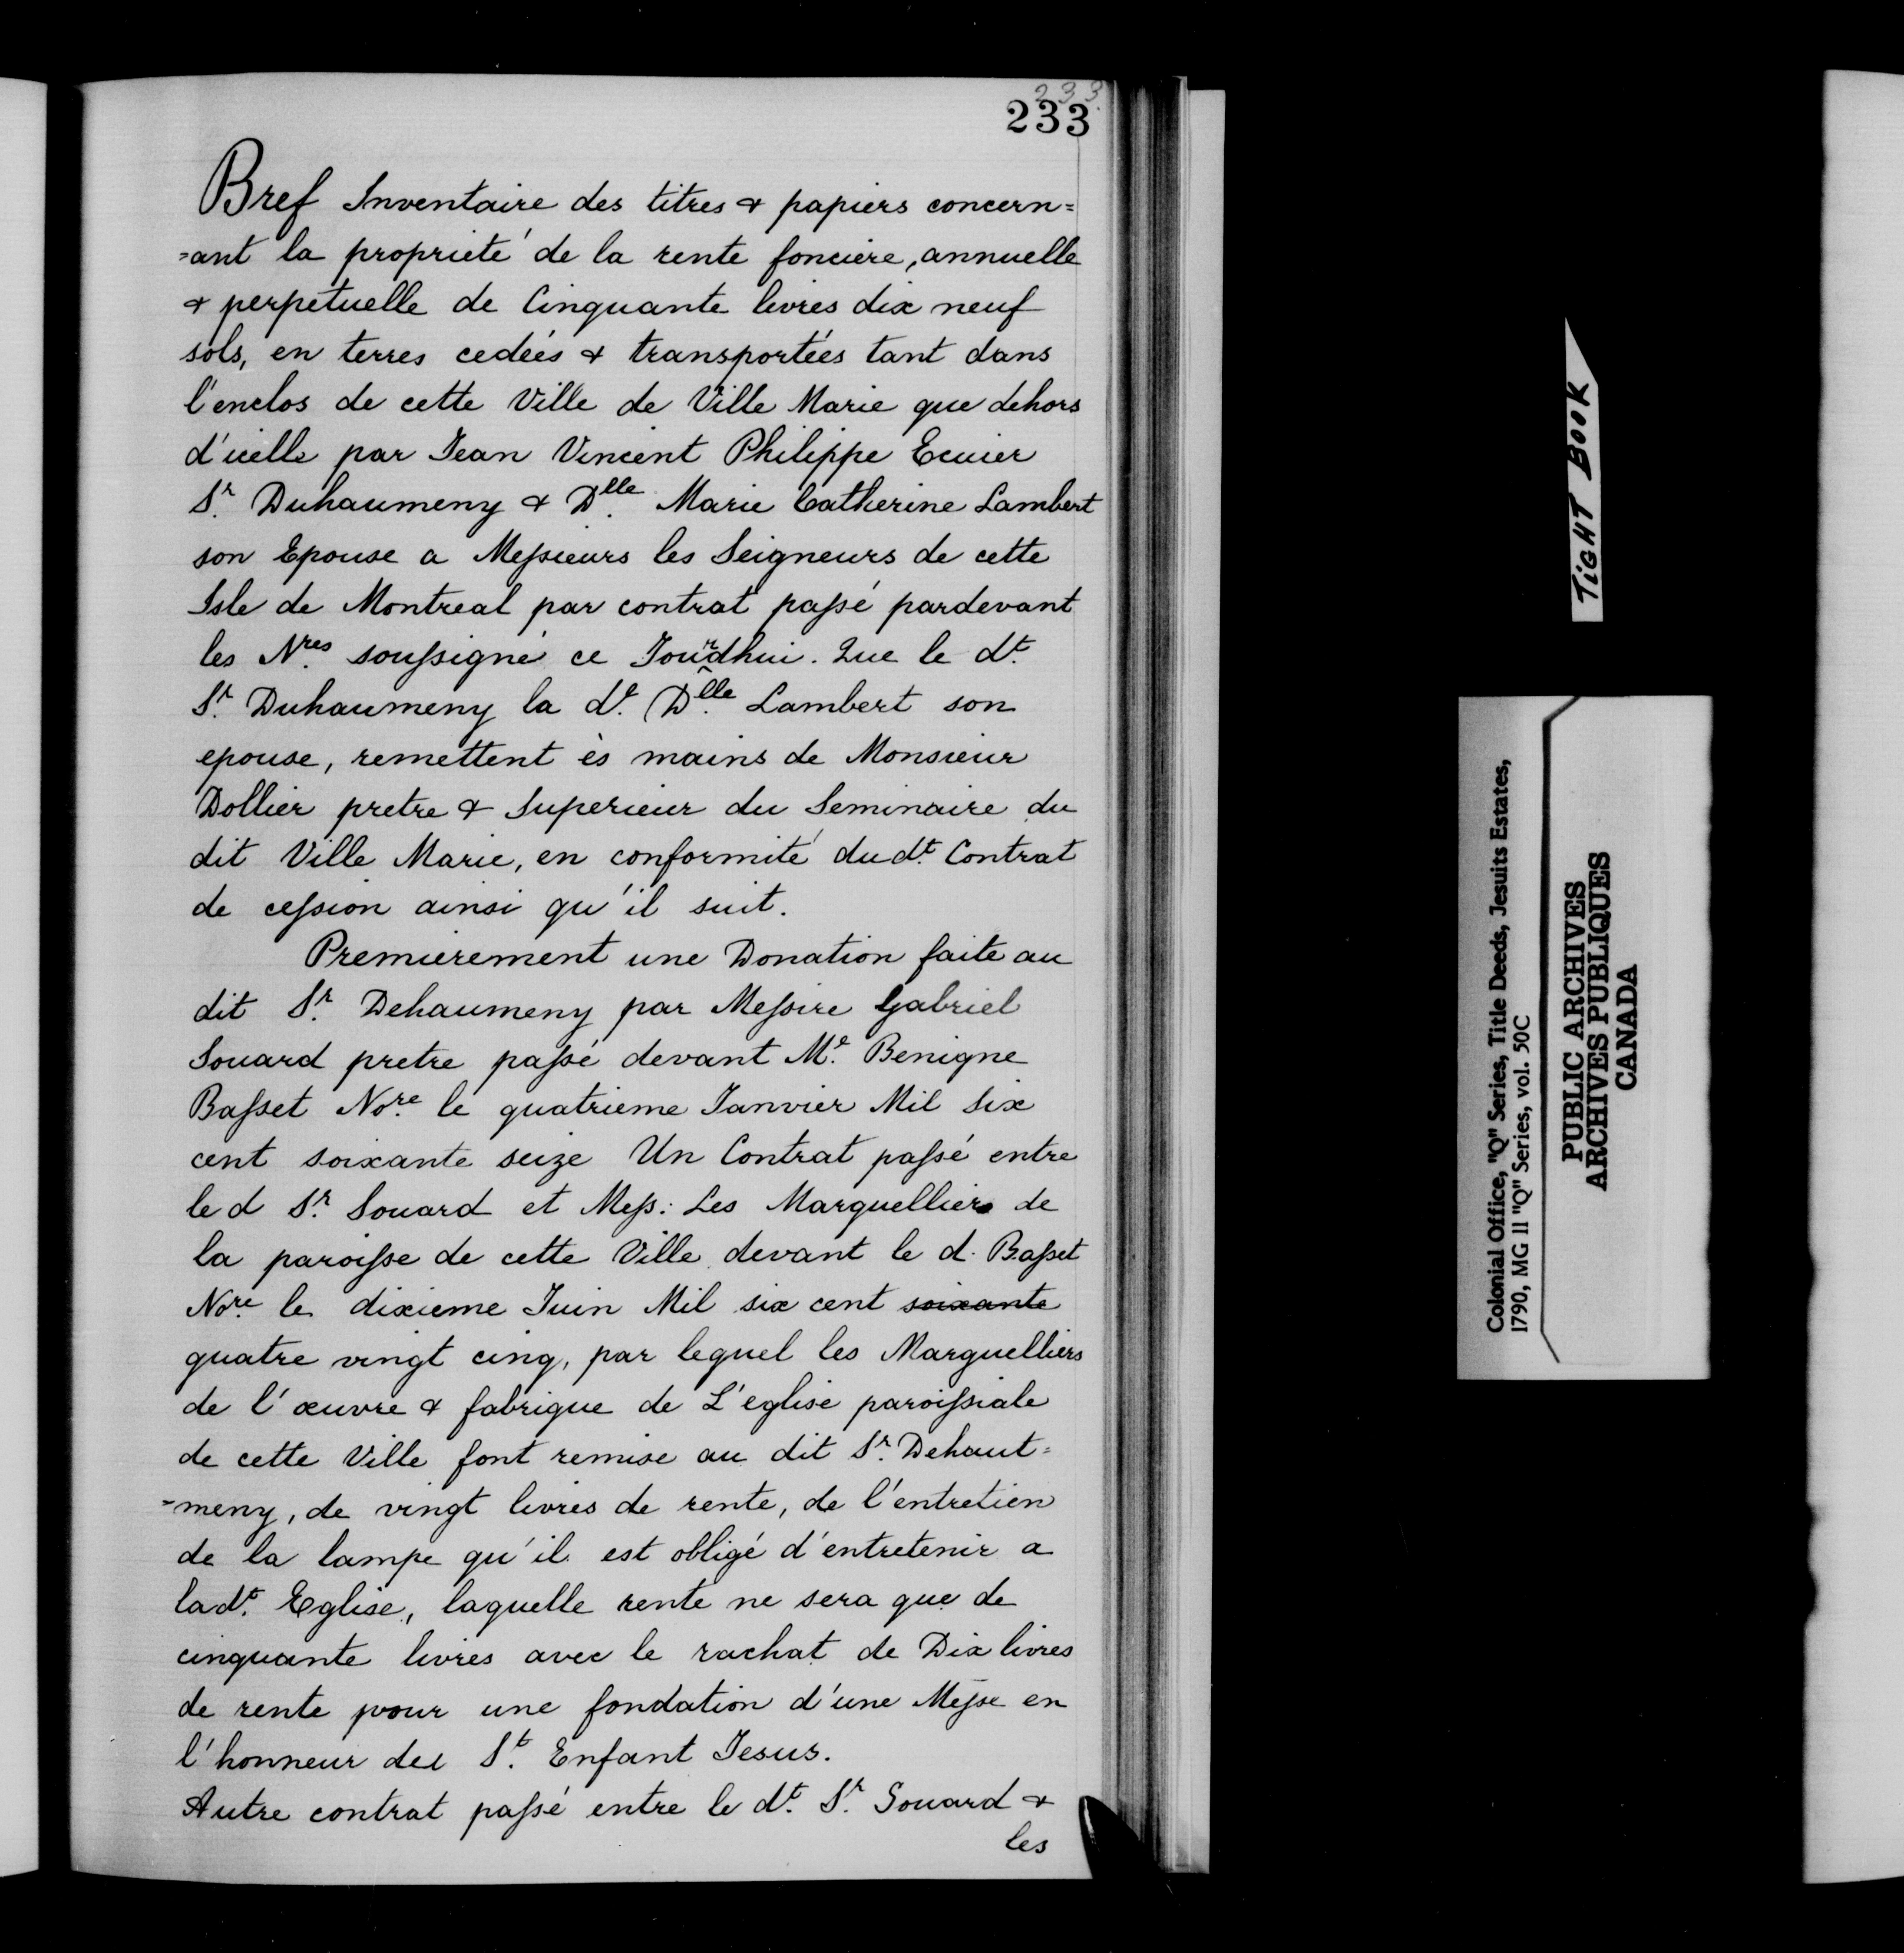 233
233.
Bref Inventaire des titres & papiers concern=
=ant la proprieté de la rente fonciere, annuelle
& perpetuelle de Cinquante livres dix neuf
sols, en terres cedées & transportées tant dans
l'enclos de cette Ville de Ville Marie que dehors
d'icelle par Jean Vincent Philippe Ecuier
Sr. Duhaumeny & Dlle. Marie Catherine Lambert
son Epouse a Messieurs les Seigneurs de cette
Isle de Montreal par contrat passé pardevant
les Nres. soussigné ce Jourdhui. Que le dt.
Sr. Duhaumeny la de. Dlle. Lambert son
epouse, remettent ès mains de Monsieur
Dollier pretre & Superieur du Seminaire du
dit Ville Marie, en conformité du dt. Contrat
de cession ainsi qu'il suit.
Premierement une Donation faite au
dit Sr. Dehaumeny par Messire Gabriel
Souard pretre passé devant Me. Benigne
Basset Nore. le quatrieme Janvier Mil six
cent soixante seize Un Contrat passé entre
le d Sr. Souard et Mess: Les Marguelliers de
la paroisse de cette Ville devant le d. Basset
Nore. le dixieme Juin Mil six cent soixante
quatre vingt cinq, par lequel les Marguelliers
de l'œuvre & fabrique de L'eglise paroissiale
de cette Ville font remise au dit Sr. Dehaut=
=meny, de vingt livres de rente, de l'entretien
de la lampe qu'il est obligé d'entretenir a
la dt. Eglise, laquelle rente ne sera que de
cinquante livres avec le rachat de Dix livres
de rente pour une fondation d'une Messe en
l'honneur del St. Enfant Jesus.
Autre contrat passé entre le dt. Sr. Souard &
les
TIGHT BOOK
Colonial Office, "Q" Series, Title Deeds, Jesuits Estates,
1790, MG 11 "Q" Series, vol. 50C
PUBLIC ARCHIVES
ARCHIVES PUBLIQUES
CANADA